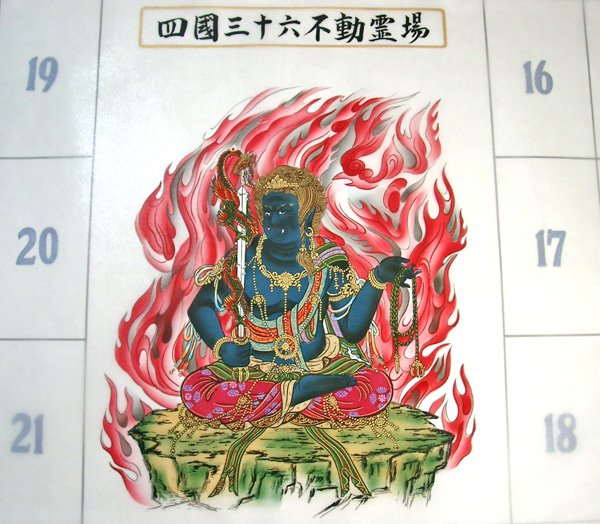 四國三十六不動霊場
19
16
20
17
21
18